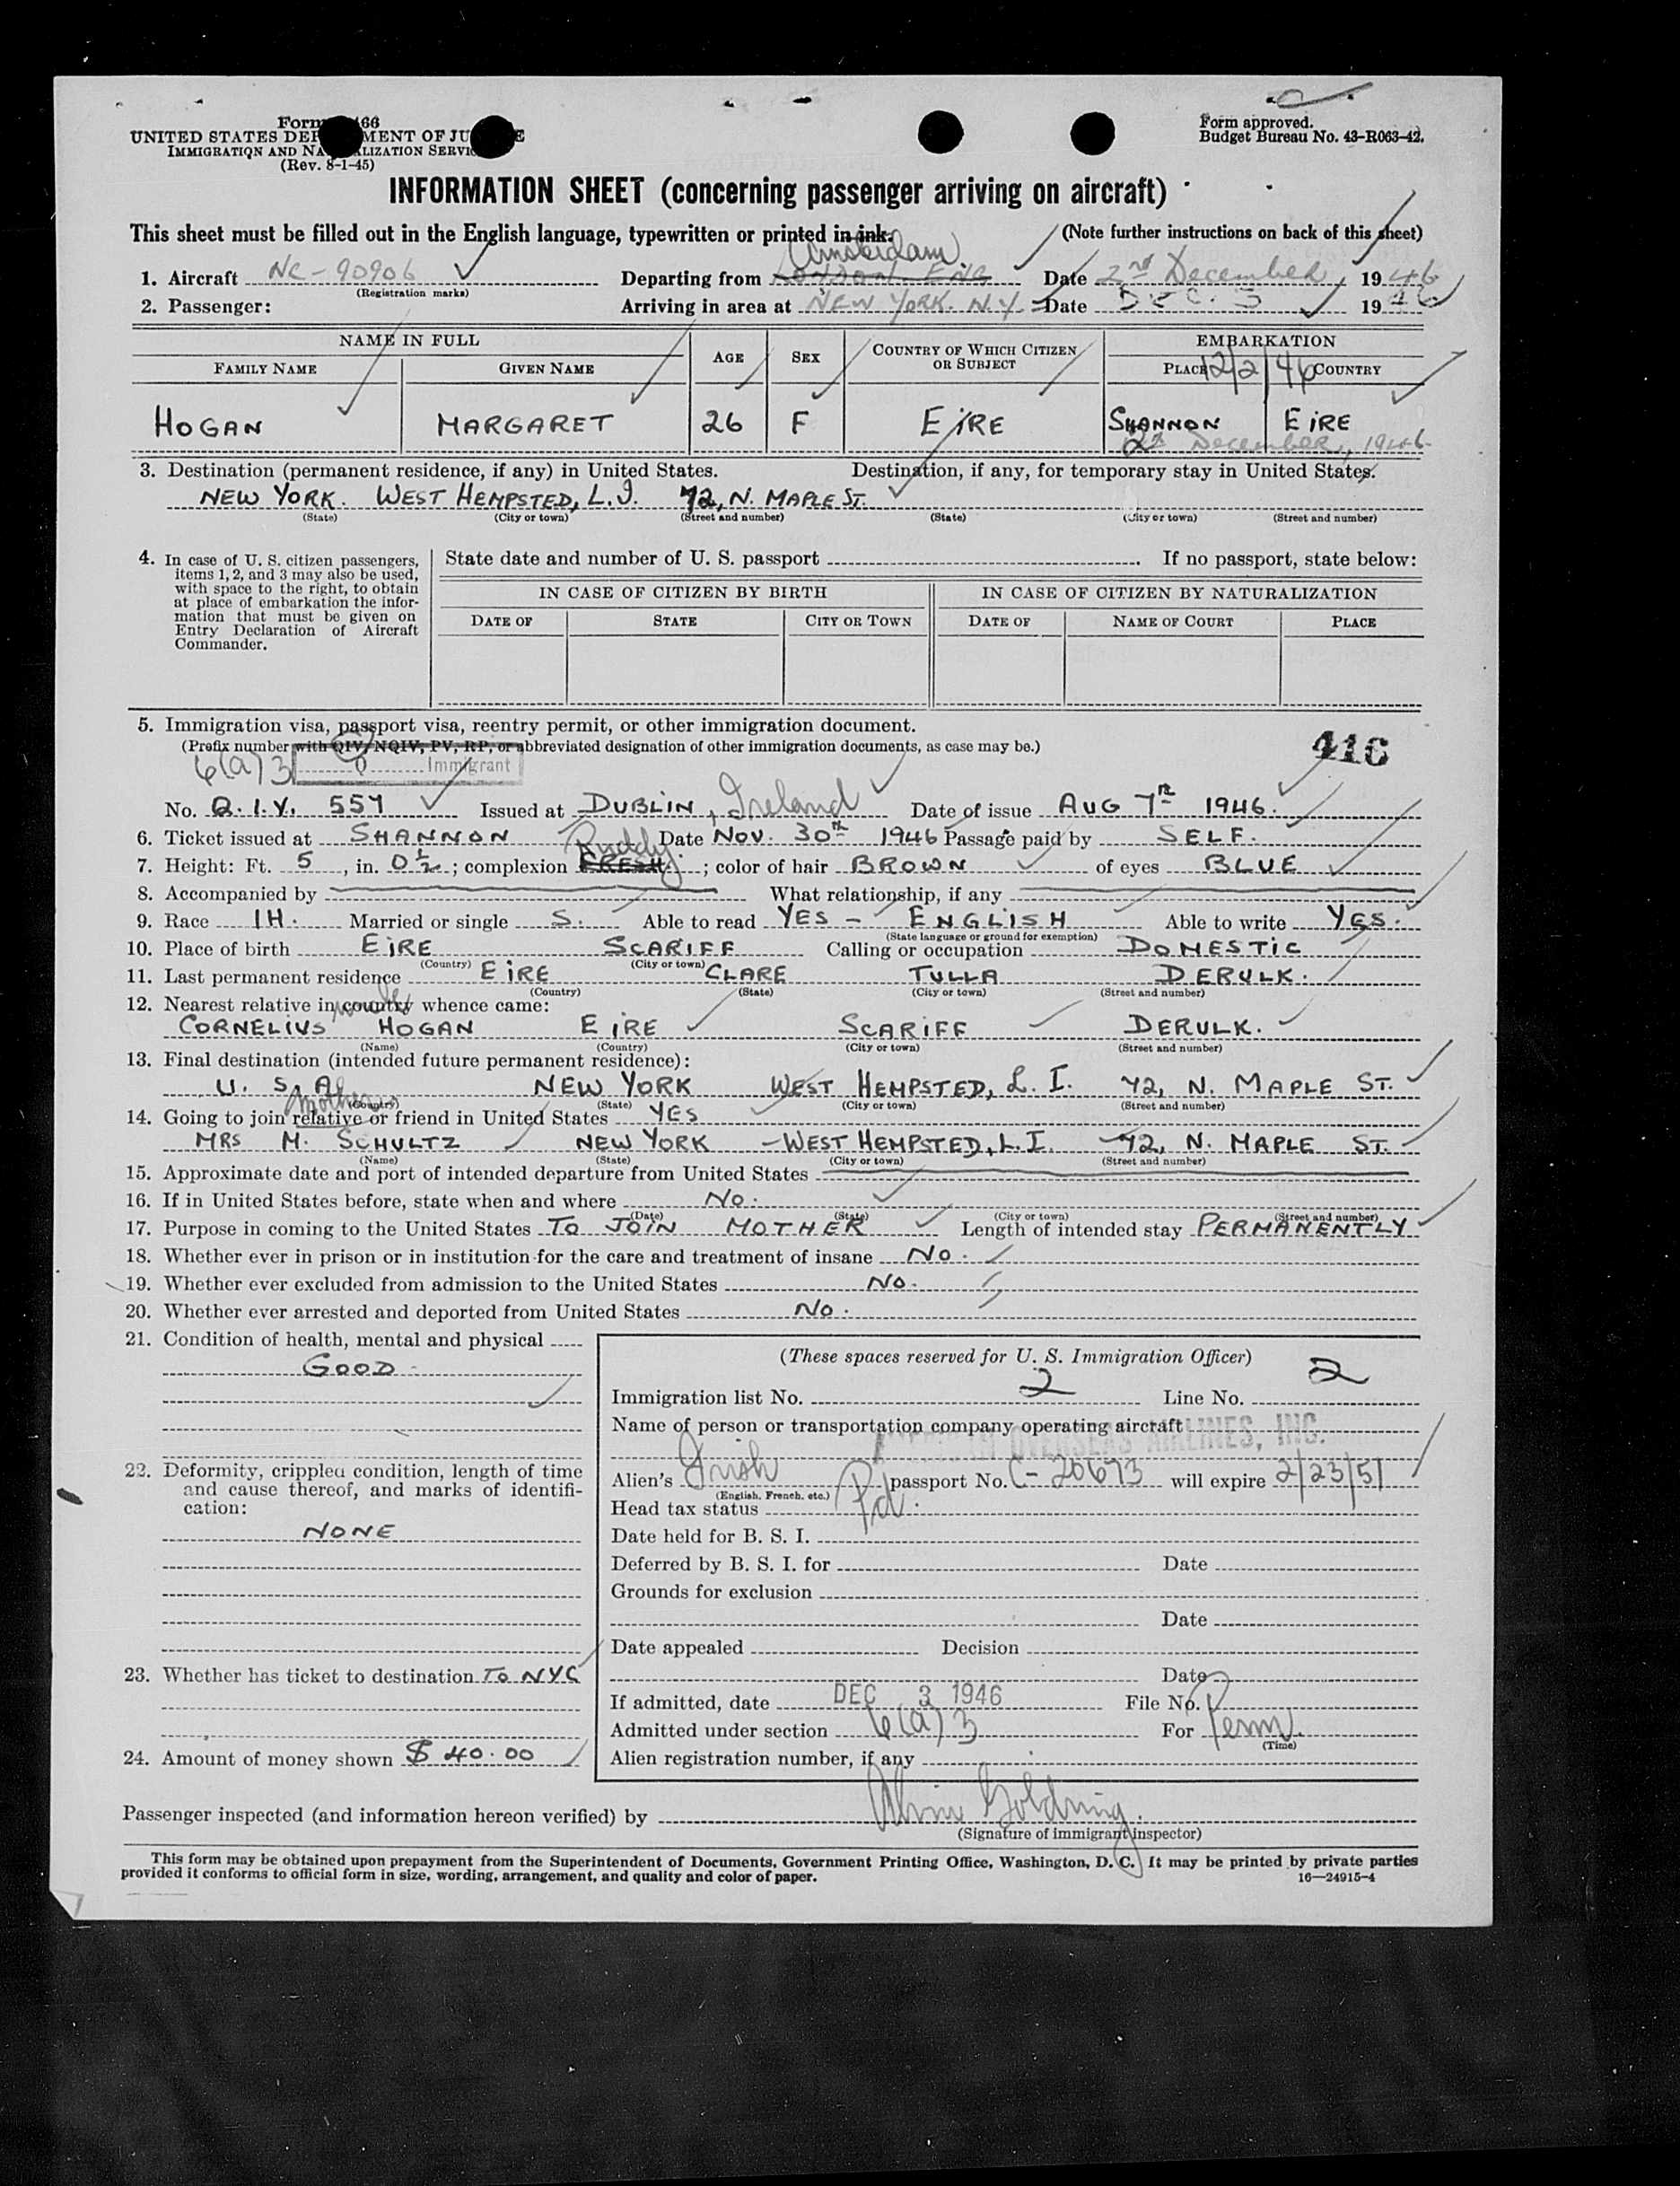 Form 66
UNITED STATES DEP MENT OF JU E
IMMIGRATION AND NA LIZATION SERVI
(Rev. 8-1-45)
Form approved.
Budget Bureau No. 43-R063-42.
INFORMATION SHEET (concerning passenger arriving on aircraft)
This sheet must be filled out in the English language, typewritten or printed in ink. (Note further instructions on back of this sheet)
Amsterdam
1. Aircraft NC-90906 Departing from LONDON. ENG Date 2nd December, 1946
(Registration marks)
2. Passenger: Arriving in area at NEW YORK. N.Y. Date DEC. 3 1946
NAME IN FULL AGE SEX COUNTRY OF WHICH CITIZEN OR SUBJECT EMBARKATION
FAMILY NAME GIVEN NAME PLACE 12/2/46 COUNTRY
HOGAN MARGARET 26 F EIRE SHANNON EIRE
2nd December, 1946
3. Destination (permanent residence, if any) in United States. Destination, if any, for temporary stay in United States.
NEW YORK. WEST HEMPSTED, L.I. 72, N. MAPLE ST.
(State) (City or town) (Street and number) (State) (City or town) (Street and number)
4. In case of U. S. citizen passengers, items 1, 2, and 3 may also be used, with space to the right, to obtain at place of embarkation the information that must be given on Entry Declaration of Aircraft Commander.
State date and number of U. S. passport If no passport, state below:
IN CASE OF CITIZEN BY BIRTH IN CASE OF CITIZEN BY NATURALIZATION
DATE OF STATE CITY OR TOWN DATE OF NAME OF COURT PLACE
5. Immigration visa, passport visa, reentry permit, or other immigration document.
(Prefix number with QIV, NQIV, PV, RP, or abbreviated designation of other immigration documents, as case may be.)
416
6(a)3 Q Immigrant
No. Q.I.V. 557 Issued at DUBLIN, Ireland Date of issue AUG 7th 1946.
6. Ticket issued at SHANNON Date NOV. 30th 1946 Passage paid by SELF.
Ruddy
7. Height: Ft. 5, in. 0½; complexion FRESH; color of hair BROWN of eyes BLUE
8. Accompanied by What relationship, if any
9. Race IH. Married or single S. Able to read YES - ENGLISH Able to write YES.
(State language or ground for exemption)
10. Place of birth EIRE SCARIFF Calling or occupation DOMESTIC
(Country) (City or town)
11. Last permanent residence EIRE CLARE TULLA DERULK.
(Country) (State) (City or town) (Street and number)
12. Nearest relative in country whence came:
CORNELIUS HOGAN EIRE SCARIFF DERULK.
(Name) (Country) (City or town) (Street and number)
13. Final destination (intended future permanent residence):
U. S. A. NEW YORK WEST HEMPSTED, L. I. 72, N. MAPLE ST.
(Country) (State) (City or town) (Street and number)
mother
14. Going to join relative or friend in United States YES
MRS M. SCHULTZ NEW YORK - WEST HEMPSTED, L.I. - 72, N. MAPLE ST.
(Name) (State) (City or town) (Street and number)
15. Approximate date and port of intended departure from United States
16. If in United States before, state when and where No.
(Date) (State) (City or town) (Street and number)
17. Purpose in coming to the United States TO JOIN MOTHER Length of intended stay PERMANENTLY
18. Whether ever in prison or in institution for the care and treatment of insane No.
19. Whether ever excluded from admission to the United States No.
20. Whether ever arrested and deported from United States No.
21. Condition of health, mental and physical
GOOD
22. Deformity, crippled condition, length of time and cause thereof, and marks of identification:
NONE
23. Whether has ticket to destination TO NYC
24. Amount of money shown $40.00
(These spaces reserved for U. S. Immigration Officer)
Immigration list No. 2 Line No. 2
Name of person or transportation company operating aircraft
OVERSEAS AIRLINES, INC.
Alien's Irish passport No. C-20673 will expire 2/23/51
(English, French, etc.)
Head tax status Pd.
Date held for B. S. I.
Deferred by B. S. I. for Date
Grounds for exclusion
Date
Date appealed Decision
Date
If admitted, date DEC 3 1946 File No.
Admitted under section 6(a)3 For Perm.
(Time)
Alien registration number, if any
Passenger inspected (and information hereon verified) by
(Signature of immigrant inspector)
This form may be obtained upon prepayment from the Superintendent of Documents, Government Printing Office, Washington, D. C. It may be printed by private parties
provided it conforms to official form in size, wording, arrangement, and quality and color of paper. 16—24915-4